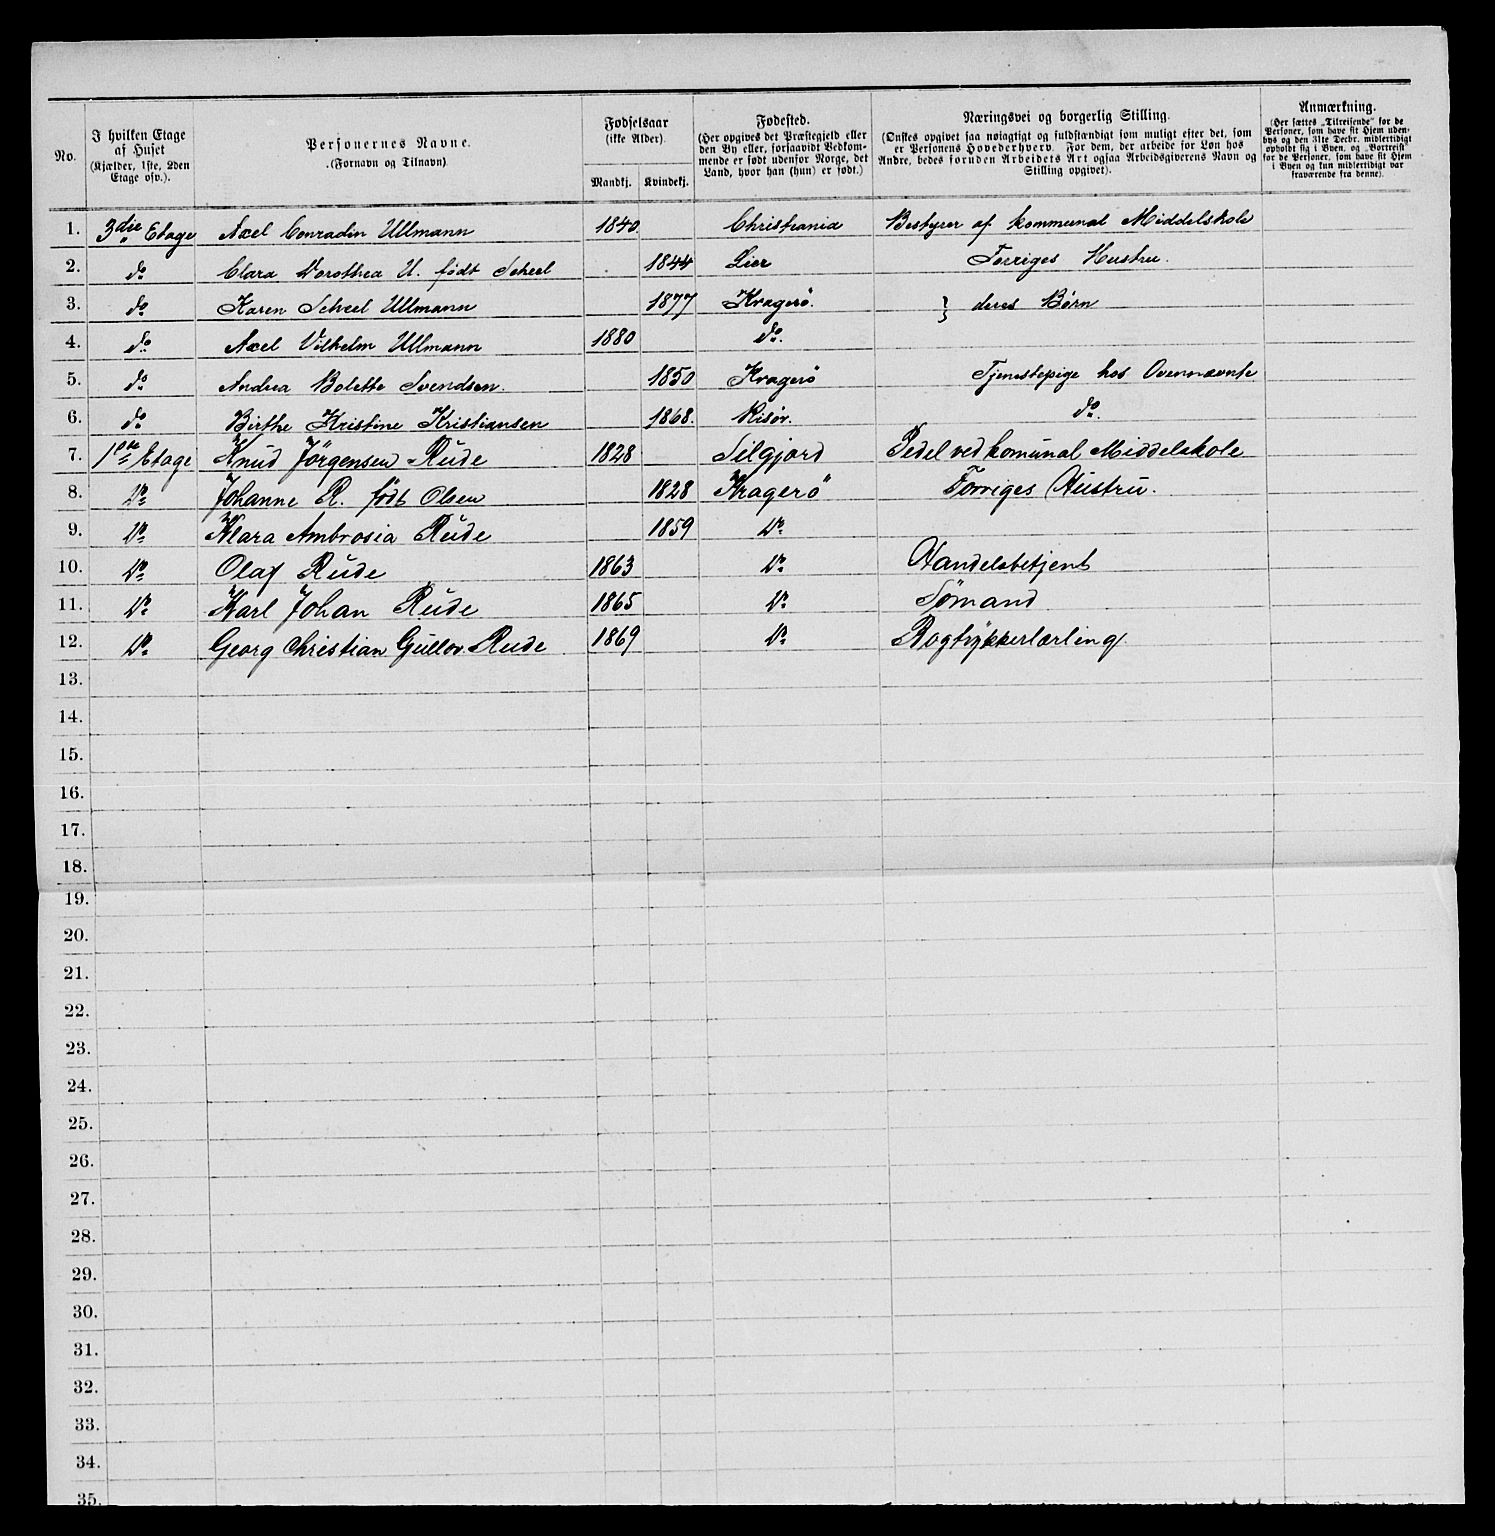 No.
I hvilken Etage
af Huset
(Kjælder, 1ste, 2den
Etage osv.).
Personernes Navne.
(Fornavn og Tilnavn).
Fødselsaar
(ikke Alder).
Mandkj. Kvindekj.
Fødested.
(Her opgives det Præstegjeld eller
den By eller, forsaavidt Vedkom-
mende er født udenfor Norge, det
Land, hvor han (hun) er født.)
Næringsvei og borgerlig Stilling.
(Ønskes opgivet saa nøiagtigt og fuldstændigt som muligt efter det, som
er Personens Hovederhverv. For dem, der arbeide for Løn hos
Andre, bedes foruden Arbeidets Art ogsaa Arbeidsgiverens Navn og
Stilling opgivet).
Anmærkning.
(Her sættes „Tilreisende" for de
Personer, som have sit Hjem uden-
bys og den 31te Decbr. midlertidigt
opholdt sig i Byen, og „Bortreist"
for de Personer, som have sit Hjem
i Byen og kun midlertidigt var
fraværende fra denne).
1. 3die Etage Axel Conradin Ullmann 1840 Christiania Bestyrer af kommunal Middelskole
2. do Clara Dorothea U. født Scheel 1844 Lier Forriges Hustru.
3. do Karen Scheel Ullmann 1877 Kragerö. } deres Børn
4. do Axel Vilhelm Ullmann 1880 do.
5. do Andrea Bolette Svendsen. 1850 Kragerö Tjenestepige hos Ovennævnte
6. do Birthe Kristine Kristiansen 1868. Risör. do.
7. 1ste Etage Knud Jörgensen Rude 1828 Silgjord Pedel ved komunal Middelskole
8. Do Johanne R. født Olsen 1828 Kragerö Forriges Hustru.
9. Do Klara Ambrosia Rude 1859 Do
10. Do Olaf Rude 1863 Do Handelsbetjent
11. Do Karl Johan Rude 1865 Do Sømand
12. Do Georg Christian Gullov Rude 1869 Do Bogtrykkerlærling
13.
14.
15.
16.
17.
18.
19.
20.
21.
22.
23.
24.
25.
26.
27.
28.
29.
30.
31.
32.
33.
34.
35.